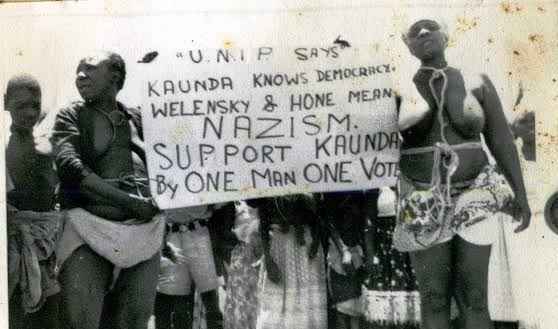 "U.N.I.P. SAYS"
KAUNDA KNOWS DEMOCRACY.
WELENSKY & HONE MEAN
NAZISM.
SUPPORT KAUNDA
BY ONE MAN ONE VOTE